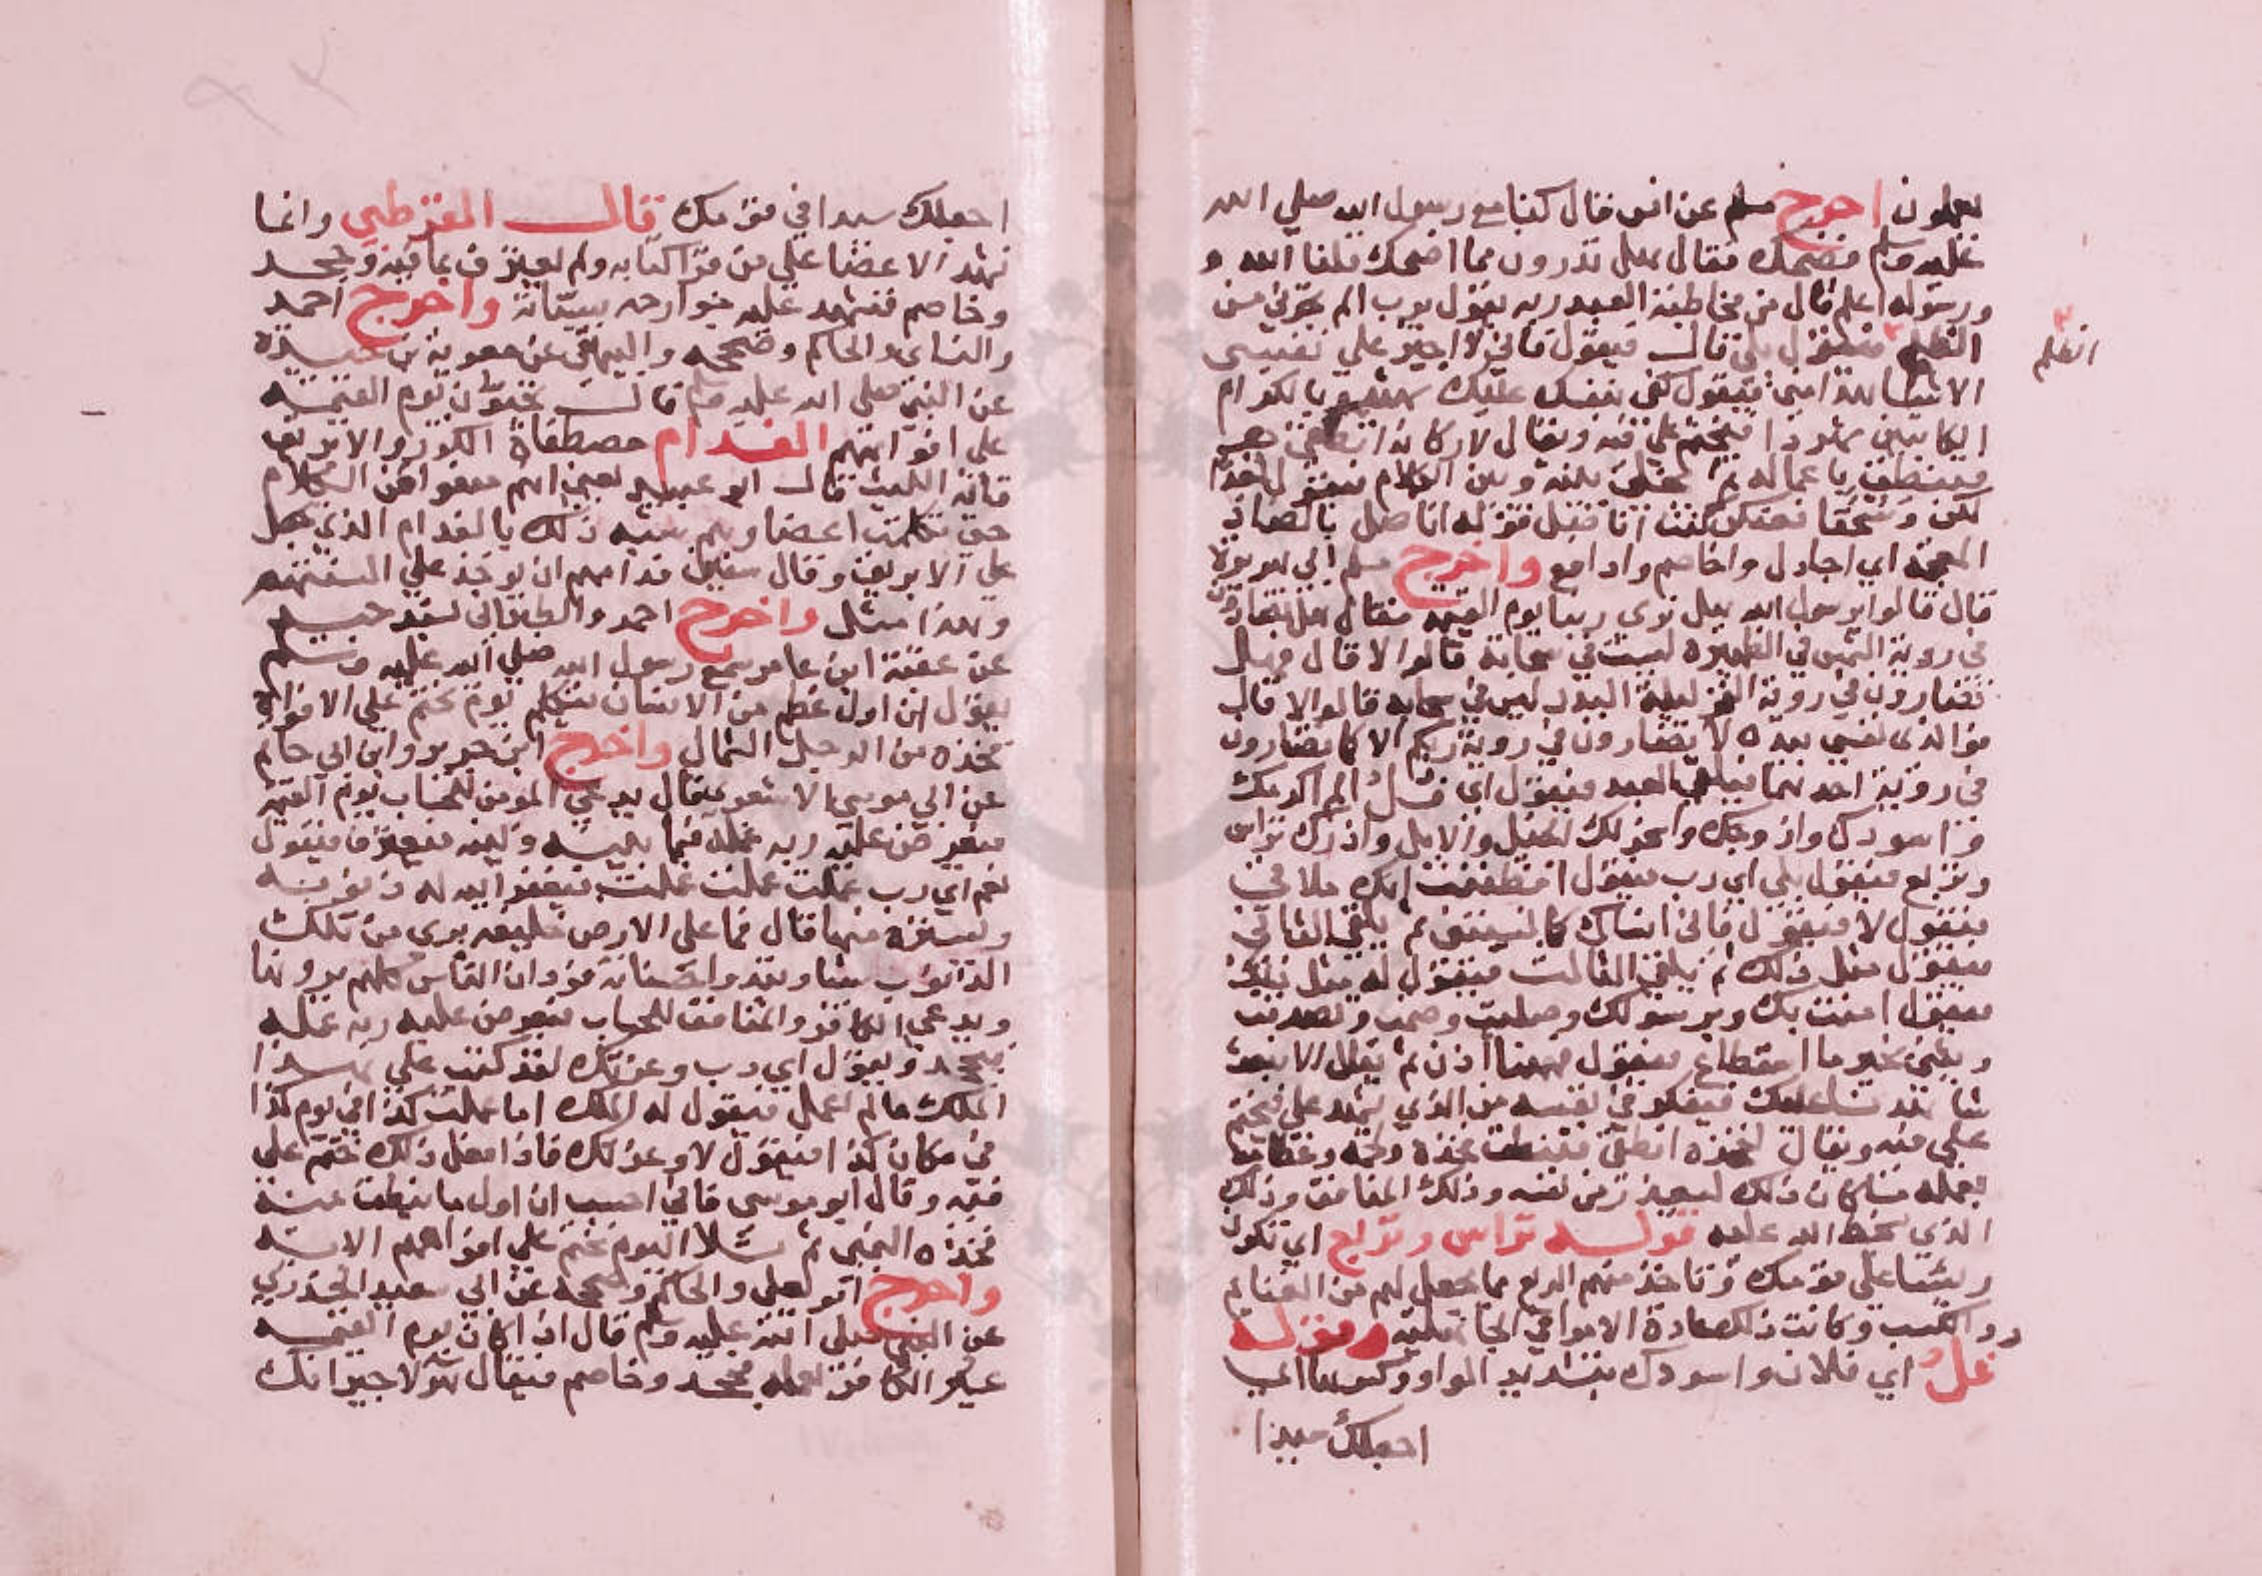 يعملون اخرج مسلم عن انس قال كنا مع رسول الله صلي الله
عليه وسلم فضحك فقال هل تدرون مما اضحك قلنا الله و
ورسوله اعلم قال من مخاطبة العبد ربه يقول يرب الم تجرني من
الظلم فيقول بلي قال فيقول فاني لا اجيز علي نفسي
الظلم
الا شاهدا مني فيقول كفي بنفسك عليك شهيدا بالكرام
الكاتبين شهودا فيختم علي فيه ويقال لاركانه انطقي
فتنطق باعماله ثم يخلي بينه وبين الكلام فيقول بعدا
لكن وسحقا فعنكن كنت اناضل قوله اناضل بالضاد
المعجمة اي اجادل واخاصم وادافع واخرج مسلم ابي هريرة
قال قالوا يرسول الله هل نري ربنا يوم القيمة فقال هل تضارون
في روية الشمس في الظهيرة ليست في سحابة قالوا لا قال فهل
تضارون في روية القمر ليلة البدر ليس في سحابه قالوا لا قال
فوالذي نفسي بيده لا تضارون في روية ربكم الا كما تضارون
في روية احدهما فيلقي العبد فيقول اي فل الم اكرمك
واسودك وازوجك واسخر لك الخيل والابل واذرك تراس
وتربع فيقول بلي اي رب فيقول افظننت انك ملاقي
فيقول لا فيقول فاني انساك كما نسيتني ثم يلقي الثاني
فيقول مثل ذلك ثم يلقي الثالث فيقول له مثل ذلك
فيقول امنت بك وبرسولك وصليت وصمت وتصدقت
ويثني بخير ما استطاع فيقول فههنا اذن ثم يقال الا نبعث
شاهدنا عليك فيفكر في نفسه من الذي يشهد علي فيختم
علي فيه ويقال لفخذه انطقي فتنطق فخذه ولحمه وعظامه
بعمله ما كان ذلك ليعذر من نفسه وذلك المنافق وذلك
الذي سخط الله عليه قوله تراس وتربع اي تكون
ريسا علي قومك وتاخذ منهم الربع مما يحصل لهم من الغنايم
والكسب وكانت ذلك عادة الامرا في الجاهلية وقوله
فل اي فلان واسودك بتشديد الواو وكسرها اي
اجعلك سيدا
اجعلك سيدا في قومك قال القرطبي وانما
تشهد الاعضا علي من قرا كتابه ولم يعترف بما فيه وجحد
وخاصم فتشهد عليه جوارحه بسيئاته واخرج احمد
والنساي والحاكم وصححه والبيهقي عن معوية بن حيدة
عن النبي صلي الله عليه وسلم قال تجيئون يوم القيمة
علي افواهكم الفدام مصفاة الكوز والابريق
قاله الليث قال ابو عبيد يعني انهم منعوا من الكلام
حتي تكلمت اعضاوهم شبه ذلك بالفدام الذي يجعل
علي الابريق وقال سفين فدامهم ان يوخذ علي السنتهم
وهذا مثل واخرج احمد والطبراني بسند جيد
عن عقبة ابن عامر سمع رسول الله صلي الله عليه وسلم
يقول ان اول عظم من الانسان يتكلم يوم يختم علي الافواه
فخذه من الرجل الشمال واخرج ابن جرير وابن ابي حاتم
عن ابي موسي الاشعري قال يدعي المومن للحساب يوم القيمة
فيعرض عليه ربه عمله فيما بينه وبينه فيعترف فيقول
نعم اي رب عملت عملت عملت فيغفر الله له ذنوبه
ويستره منها قال فما علي الارض خليقه يري من تلك
الذنوب شيا وتبدو احسناته فود ان الناس كلهم يرونها
ويدعي الكافر والمنافق للحساب فيعرض عليه ربه عمله
فيجحد ويقول اي رب وعزتك لقد كتب علي هذا
الملك ما لم اعمل فيقول له الملك اما عملت كذا في يوم كذا
في مكان كذا فيقول لا وعزتك فاذا فعل ذلك ختم علي
فيه وقال ابو موسي فاني احسب ان اول ما ينطق منه
فخذه اليمني ثم تلا اليوم نختم علي افواههم الاية
واخرج ابو يعلي والحاكم وصححه عن ابي سعيد الخدري
عن النبي صلي الله عليه وسلم قال اذا كان يوم القيمة
عير الكافر بعمله فجحد وخاصم فيقال هولا جيرانك